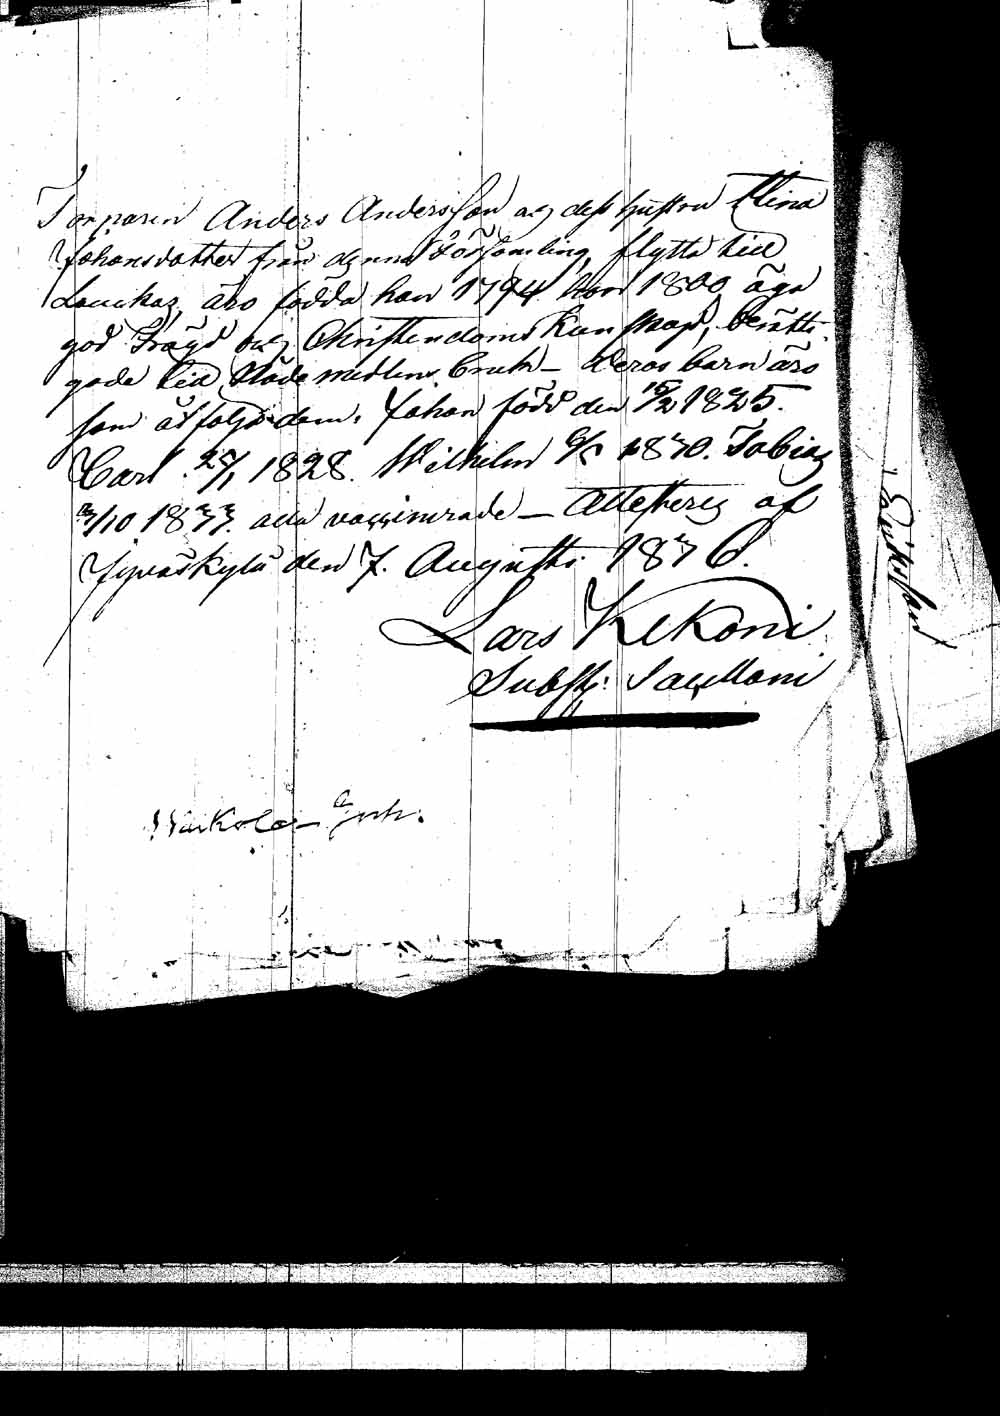 Torparen Anders Andersson och dess hustru Stina
Johansdotter från denna Församling, flytta till
Laukas, äro födda han 1794 hon 1800, äga
god Frägd och Christendoms Kunskap, berätti-
gade till Nådemedlens bruk – Deras barn äro
som åtfölja dem. Johan född den 15/2 1825.
Carl 25/1 1828. Wilhelm 6/5 1830. Tobias
/10 1833. alla vaccinerade – Attesteras af
Jyväskylä den 7. Augusti 1836.
Lars Kekoni
Subst: Sacellani